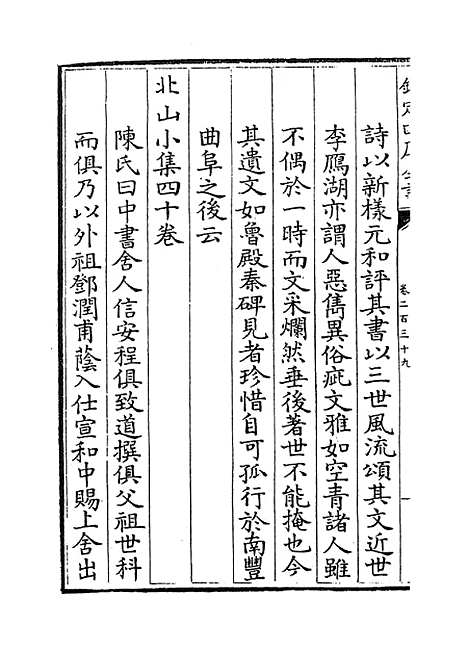 欽定四庫全書
卷二百三十九
一
詩以新樣元和評其書以三世風流頌其文近世
李鴈湖亦謂人惡雋異俗疵文雅如空青諸人雖
不偶於一時而文采爛然垂後著世不能掩也今
其遺文如魯殿秦碑見者珍惜自可孤行於南豐
曲阜之後云
北山小集四十卷
陳氏曰中書舍人信安程俱致道撰俱父祖世科
而俱乃以外祖鄧潤甫蔭入仕宣和中賜上舍出